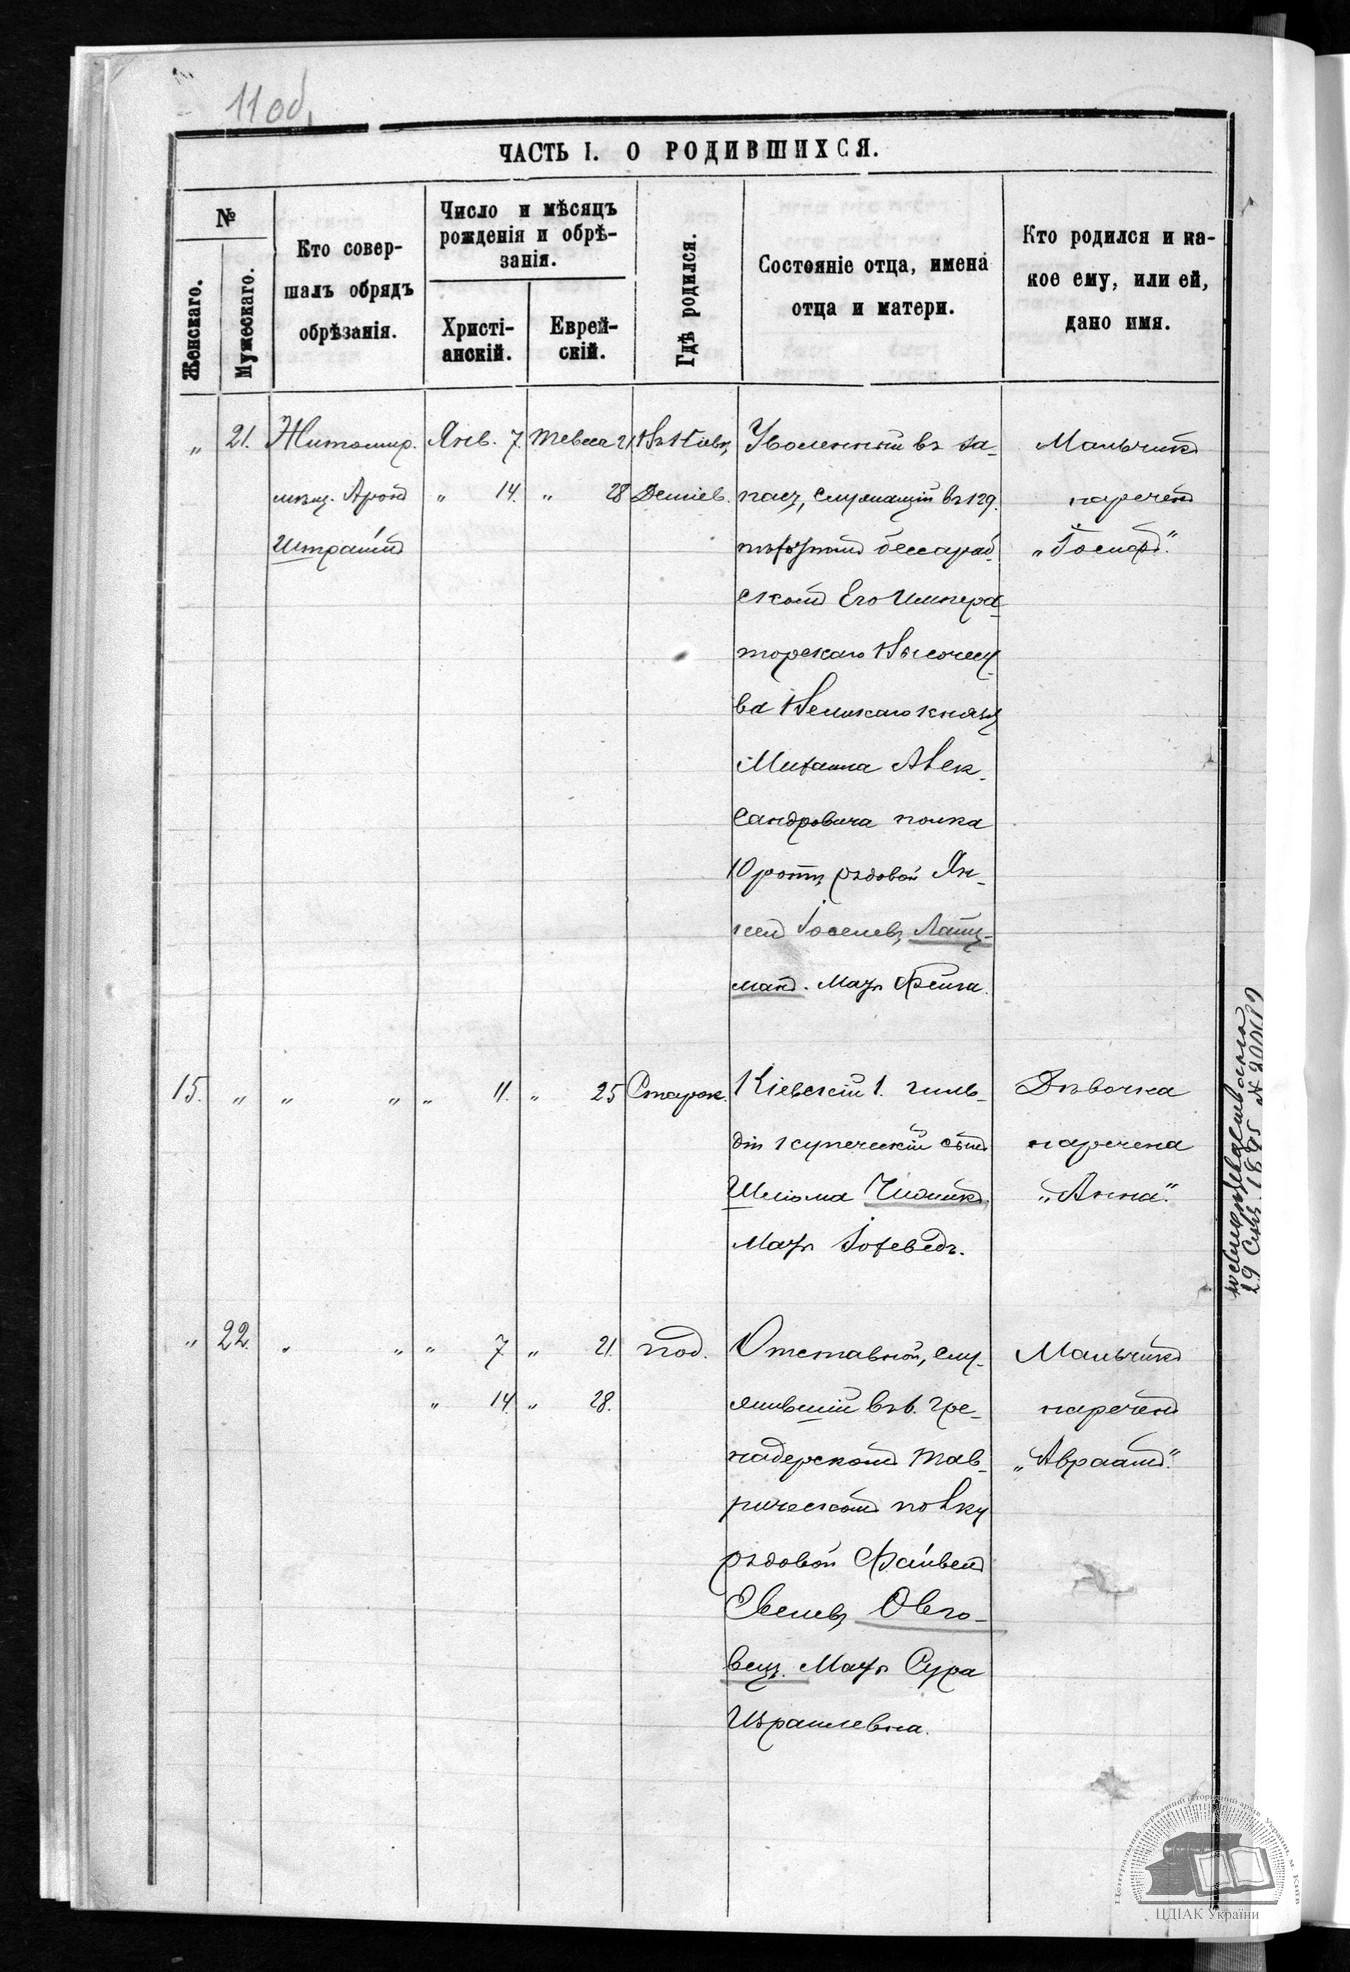 11 об.
ЧАСТЬ I. О РОДИВШИХСЯ.
№
Женскаго.
Мужескаго.
Кто совер-
шалъ обрядъ
обрѣзанія.
Число и мѣсяцъ
рожденія и обрѣ-
занія.
Христі-
анскій.
Еврей-
скій.
Гдѣ родился.
Состояніе отца, имена
отца и матери.
Кто родился и ка-
кое ему, или ей,
дано имя.
„ 21. Житомир. Янв. 7. Тевеса 21 Въ Кіевѣ,
мѣщ. Аронъ „ 14. „ 28 Деміев.
Штраймъ
Уволенный въ за-
пасъ, служащій въ 129.
пѣхотномъ бессараб
скомъ Его Импера-
торскаго Высочест-
ва Великаго князя
Михаила Алек-
сандровича полка
10 роты рядовой Ян-
кель Іоселевъ Лайц-
манъ. Мать Фейга.
Мальчикъ
нареченъ
„Іосифъ“.
15. „ „ „ „ 11. „ 25 Старок.
Кіевскій 1. гиль-
діи купеческій сынъ
Шлiома
Мать Іохеведъ.
Дѣвочка
наречена
„Анна“.
„ 22. „ „ „ 7 „ 21. под.
„ 14. „ 28.
Отставной, слу-
жившій въ 6. гре-
надерскомъ Тав-
рическомъ полку
рядовой Файвель
Евелевъ Овго-
вецъ. Мать Сура
Израилевна.
Мальчикъ
нареченъ
„Авраамъ“.
29 1895 №
Центральний державний історичний архів України, м. Київ
ЦДІАК України